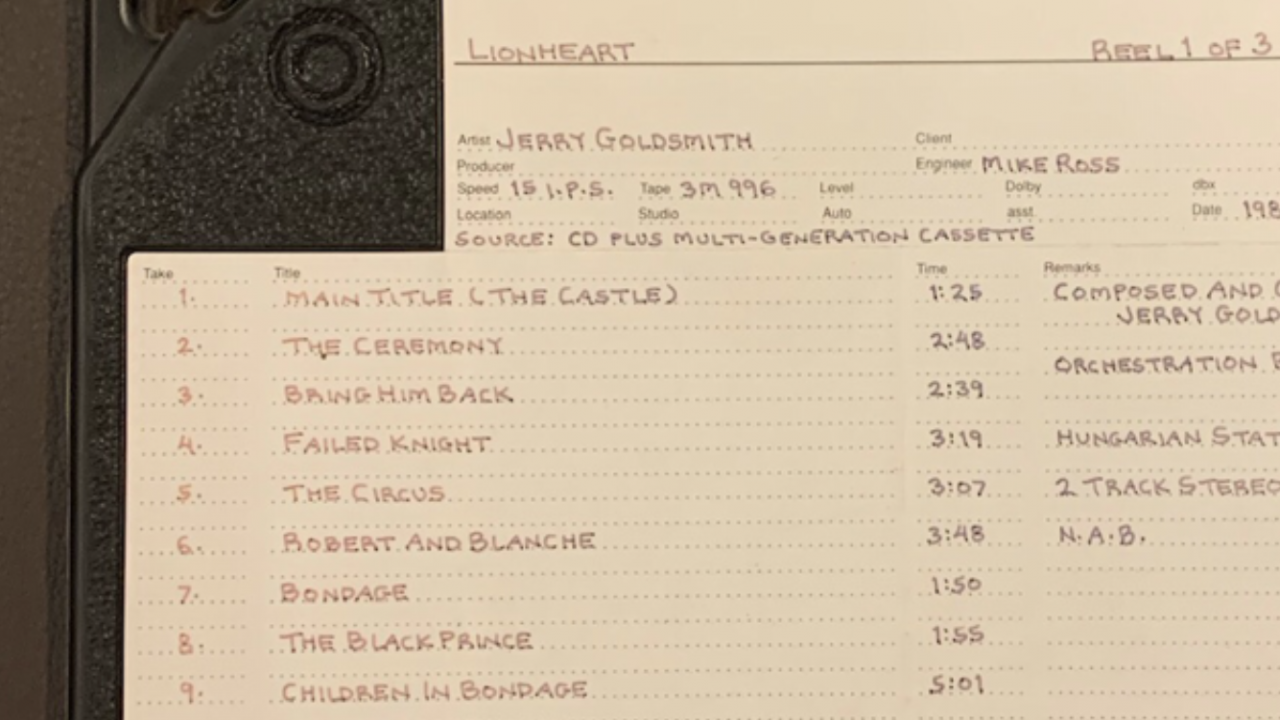 LIONHEART REEL 1 OF 3
Artist JERRY GOLDSMITH Client
Producer Engineer MIKE ROSS
Speed 15 I.P.S. Tape 3M 996 Level Dolby dbx
Location Studio Auto asst Date 198
SOURCE: CD PLUS MULTI-GENERATION CASSETTE
Take Title Time Remarks
1. MAIN TITLE (THE CASTLE) 1:25 COMPOSED AND
JERRY GOLD
2. THE CEREMONY 2:48
ORCHESTRATION
3. BRING HIM BACK 2:39
4. FAILED KNIGHT 3:19 HUNGARIAN STAT
5. THE CIRCUS 3:07 2 TRACK STEREO
6. ROBERT AND BLANCHE 3:48 N.A.B.
7. BONDAGE 1:50
8. THE BLACK PRINCE 1:55
9. CHILDREN IN BONDAGE 5:01